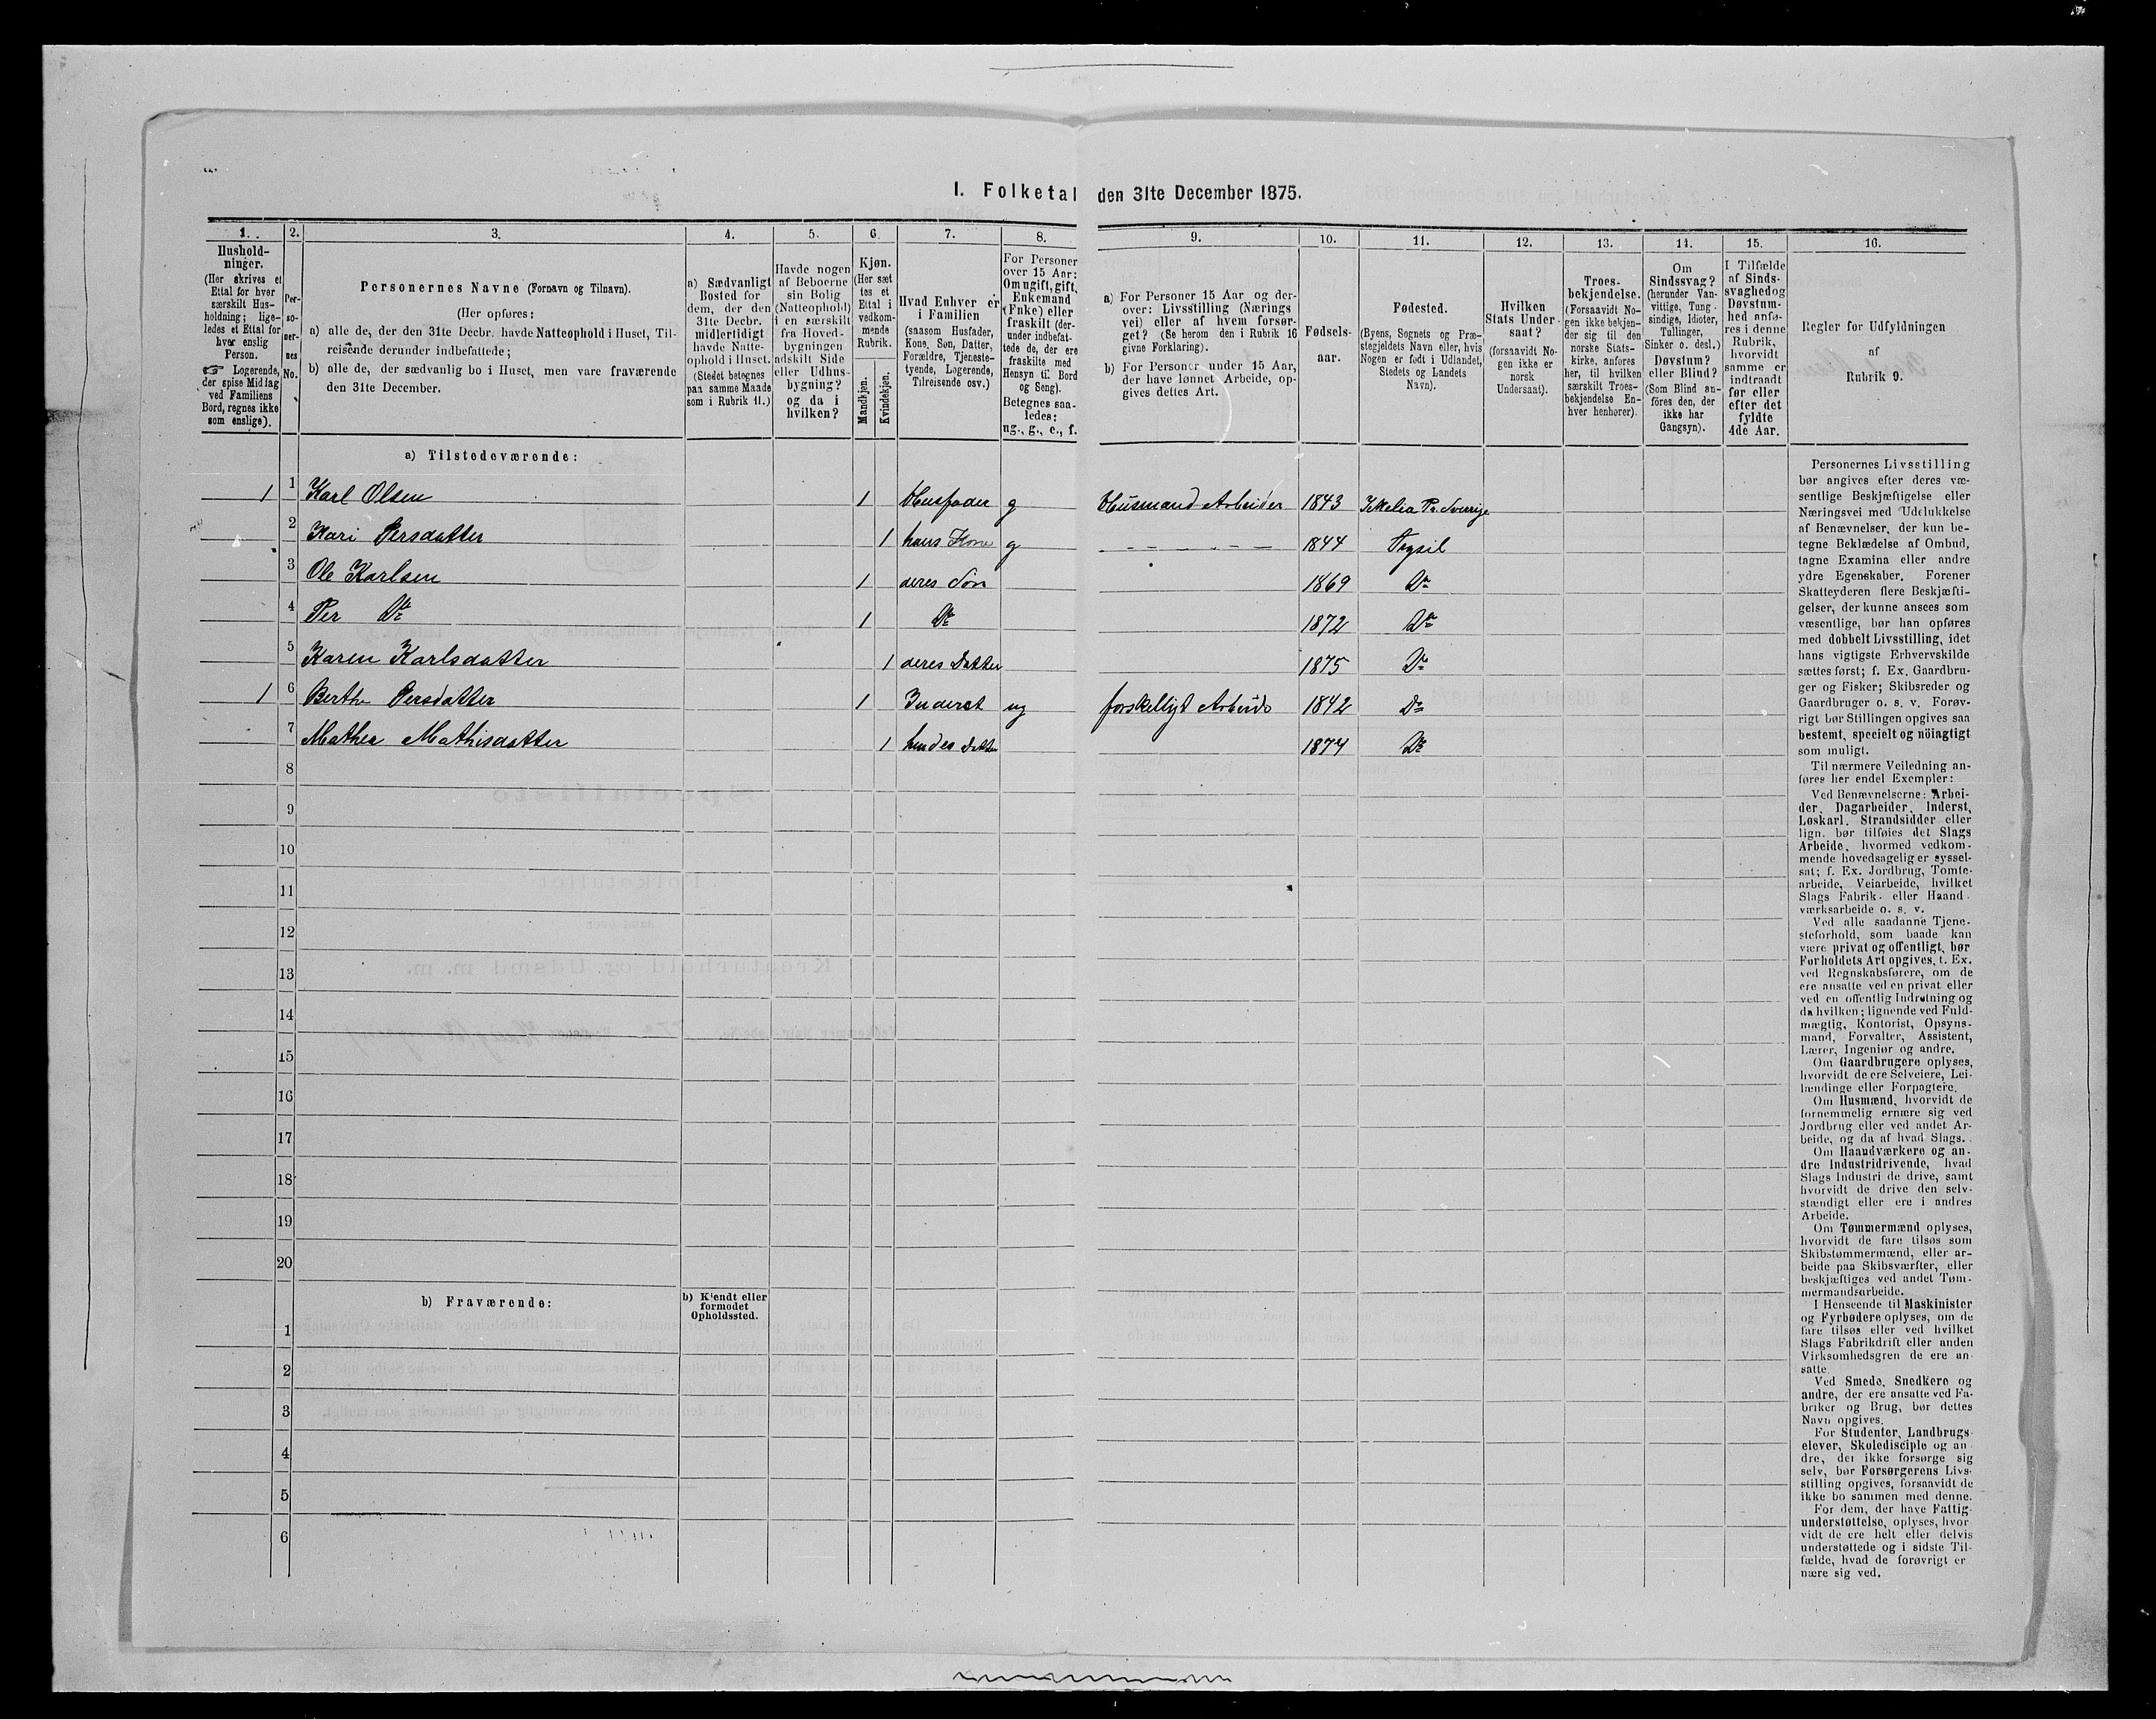 I. Folketal den 31te December 1875.
1. 2. 3. 4. 5. 6. 7. 8. 9. 10. 11. 12. 13. 14. 15. 16.
Hushold-
ninger.
(Her skrives et
Ettal for hver
særskilt Hus-
holdning; lige-
ledes et Ettal for
hver enslig
Person.
☞ Logerende,
der spise Middag
ved Familiens
Bord, regnes ikke
som enslige).
Per-
so-
ner-
nes
No.
Personernes Navne (Fornavn og Tilnavn).
(Her opføres:
a) alle de, der den 31te Decbr. havde Natteophold i Huset, Til-
reisende derunder indbefattede;
b) alle de, der sædvanlig bo i Huset, men vare fraværende
den 31te December.
a) Sædvanligt
Bosted for
dem, der den
31te Decbr.
midlertidigt
havde Natte-
ophold i Huset.
(Stedet betegnes
paa samme Maade
som i Rubrik 11.)
Havde nogen
af Beboerne
sin Bolig
(Natteophold)
i en særskilt
fra Hoved-
bygningen
adskilt Side
eller Udhus-
bygning?
og da i
hvilken?
Kjøn.
(Her sæt
tes et
Ettal i
vedkom-
mende
Rubrik.
Mandkjøn.
Kvindekjøn.
Hvad Enhver er
i Familien
(saasom Husfader,
Kone, Søn, Datter,
Forældre, Tjeneste-
tyende, Logerende,
Tilreisende osv.)
For Personer
over 15 Aar:
Om ugift, gift,
Enkemand
(Enke) eller
fraskilt (der-
under indbefat-
tede de, der ere
fraskilte med
Hensyn til Bord
og Seng).
Betegnes saa-
ledes:
ug., g., e., f.
a) For Personer 15 Aar og der-
over: Livsstilling (Nærings
vei) eller af hvem forsør-
get? (Se herom den i Rubrik 16
givne Forklaring).
b) For Personer under 15 Aar,
der have lønnet Arbeide, op-
gives dettes Art.
Fødsels-
aar.
Fødested.
(Byens, Sognets og Præ-
stegjeldets Navn eller, hvis
Nogen er født i Udlandet,
Stedets og Landets
Navn).
Hvilken
Stats Under-
saat?
(forsaavidt No-
gen ikke er
norsk
Undersaat).
Troes-
bekjendelse.
(Forsaavidt No-
gen ikke bekjen-
der sig til den
norske Stats-
kirke, anføres
her, til hvilken
særskilt Troes-
bekjendelse En-
hver henhører).
Om
Sindssvag?
(herunder Van-
vittige, Tung-
sindige, Idioter,
Tullinger,
Sinker o. desl.)
Døvstum?
eller Blind?
(Som Blind an-
føres den, der
ikke har
Gangsyn).
I Tilfælde
af Sinds-
svaghed og
Døvstum-
hed anfø-
res i denne
Rubrik,
hvorvidt
samme er
indtraadt
før eller
efter det
fyldte
4de Aar.
Regler for Udfyldningen
af
Rubrik 9.
a) Tilstedeværende:
1 1 Karl Olsen 1 Husfader g Husmand Arbeider 1843 Sverige
2 Kari Persdatter 1 hans Kone g 1844 Trysil
3 Ole Karlsen 1 deres Søn 1869 Do
4 Per Do 1 Do 1872 Do
5 Karen Karlsdatter 1 deres Datter 1875 Do
1 6 Berthe Persdatter 1 Inderst ug forskelligt Arbeide 1842 Do
7 Mathea Mathisdatter 1 hendes Datter 1874 Do
8
9
10
11
12
13
14
15
16
17
18
19
20
b) Fraværende:
b) Kjendt eller
formodet
Opholdssted.
1
2
3
4
5
6
Personernes Livsstilling
bør angives efter deres væ-
sentlige Beskjæftigelse eller
Næringsvei med Udelukkelse
af Benævnelser, der kun be-
tegne Beklædelse af Ombud,
tagne Examina eller andre
ydre Egenskaber. Forener
Skatteyderen flere Beskjæfti-
gelser, der kunne ansees som
væsentlige, bør han opføres
med dobbelt Livsstilling, idet
hans vigtigste Erhvervskilde
sættes først; f. Ex. Gaardbru-
ger og Fisker; Skibsreder og
Gaardbruger o. s. v. Forøv-
rigt bør Stillingen opgives saa
bestemt, specielt og nöiagtigt
som muligt.
Til nærmere Veiledning an-
føres her endel Exempler:
Ved Benævnelserne: Arbei-
der, Dagarbeider, Inderst,
Løskarl, Strandsidder eller
lign. bør tilføies det Slags
Arbeide, hvormed vedkom-
mende hovedsagelig er syssel-
sat; f. Ex. Jordbrug, Tomte-
arbeide, Veiarbeide, hvilket
Slags Fabrik- eller Haand-
værksarbeide o. s. v.
Ved alle saadanne Tjene-
steforhold, som baade kan
være privat og offentligt, bør
Forholdets Art opgives, f. Ex.
ved Regnskabsførere, om de
ere ansatte ved en privat eller
ved en offentlig Indretning og
da hvilken; lignende ved Fuld-
mægtig, Kontorist, Opsyns-
mand, Forvalter, Assistent,
Lærer, Ingeniør og andre.
Om Gaardbrugere oplyses,
hvorvidt de ere Selveiere, Lei-
lændinge eller Forpagtere.
Om Husmænd, hvorvidt de
fornemmelig ernære sig ved
Jordbrug eller ved andet Ar-
beide, og da af hvad Slags.
Om Haandværkere og an-
dre Industridrivende, hvad
Slags Industri de drive, samt
hvorvidt de drive den selv-
stændigt eller ere i andres
Arbeide.
Om Tømmermænd oplyses,
hvorvidt de fare tilsøs som
Skibstømmermænd, eller ar-
beide paa Skibsværfter, eller
beskjæftiges ved andet Tøm-
mermandsarbeide.
I Henseende til Maskinister
og Fyrbødere oplyses, om de
fare tilsøs eller ved hvilket
Slags Fabrikdrift eller anden
Virksomhedsgren de ere an-
satte.
Ved Smede, Snedkere og
andre, der ere ansatte ved Fa-
briker og Brug, bør dettes
Navn opgives.
For Studenter, Landbrugs-
elever, Skoledisciple og an-
dre, der ikke forsørge sig
selv, bør Forsørgerens Livs-
stilling opgives, forsaavidt de
ikke bo sammen med denne.
For dem, der have Fattig-
understøttelse, oplyses, hvor-
vidt de ere helt eller delvis
understøttede og i sidste Til-
fælde, hvad de forøvrigt er-
nære sig ved.